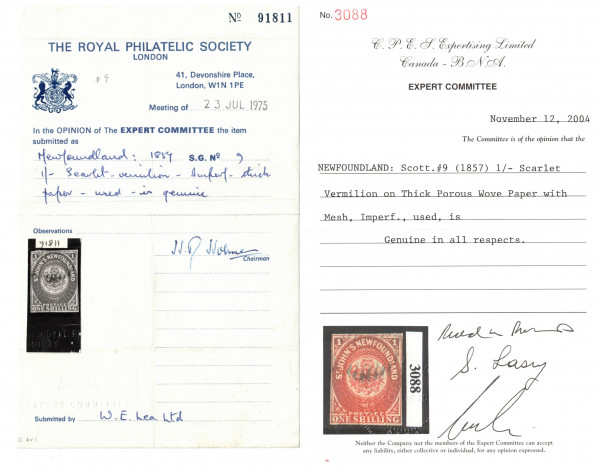 No 91811
THE ROYAL PHILATELIC SOCIETY
LONDON
#9
41, Devonshire Place,
London, W1N 1PE
Meeting of 23 JUL 1975
In the OPINION of The EXPERT COMMITTEE the item
submitted as
Newfoundland: 1857 S.G. No 9
1/- Scarlet-vermilion - Imperf - thick
paper - used - is genuine
Observations
91811
ST. JOHN'S NEWFOUNDLAND
ONE SHILLING
Chairman
Submitted by W. E. Lea Ltd
No. 3088
C. P. E. S. Expertising Limited
Canada - B.N.A.
EXPERT COMMITTEE
November 12, 2004
The Committee is of the opinion that the
NEWFOUNDLAND: Scott.#9 (1857) 1/- Scarlet
Vermilion on Thick Porous Wove Paper with
Mesh, Imperf., used, is
Genuine in all respects.
1 1
ST. JOHN'S NEWFOUNDLAND
POSTAGE
ONE SHILLING
3088
Neither the Company not the members of the Expert Committee can accept
any liability, either collective or individual, for any opinion expressed.